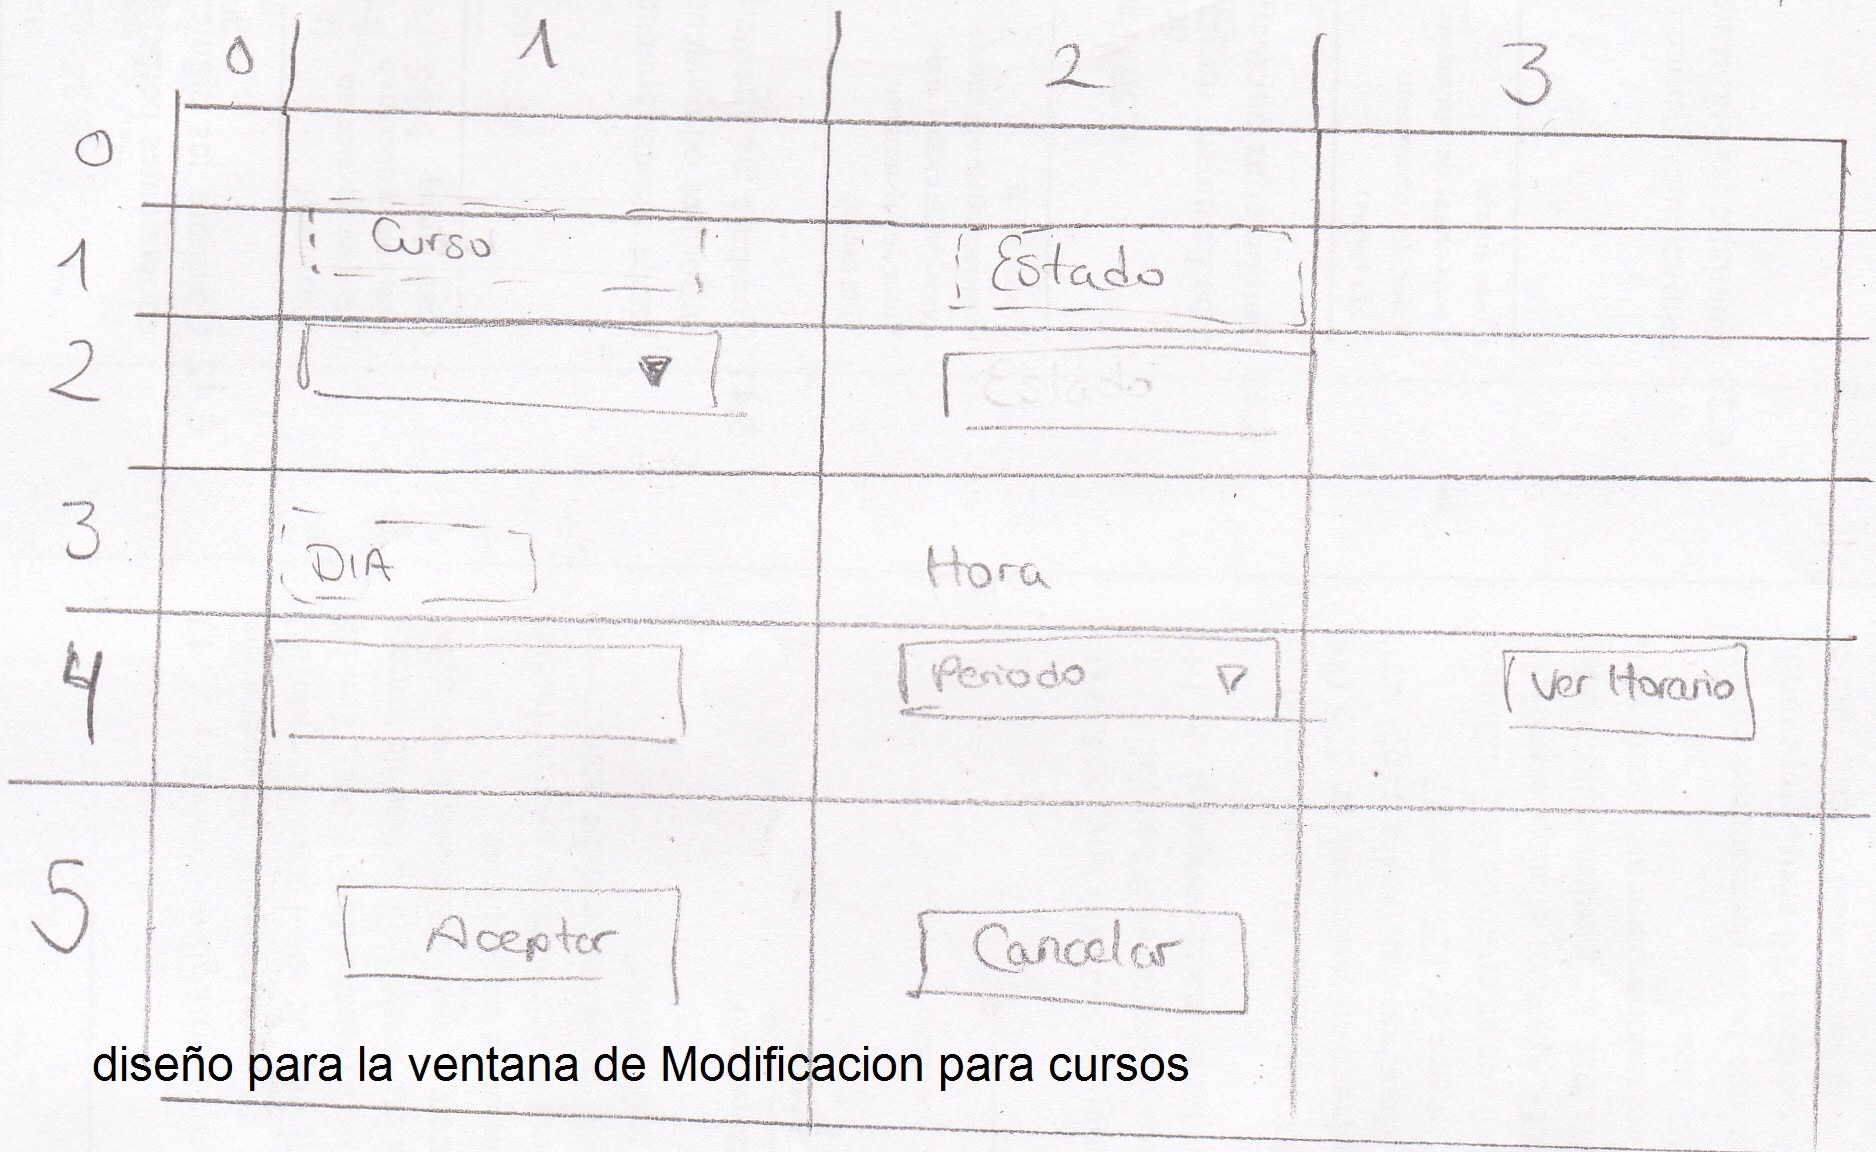 0 1 2 3
0
1 Curso Estado
2 Estado
3 DIA Hora
4 Periodo Ver Horario
5 Aceptar Cancelar
diseño para la ventana de Modificacion para cursos